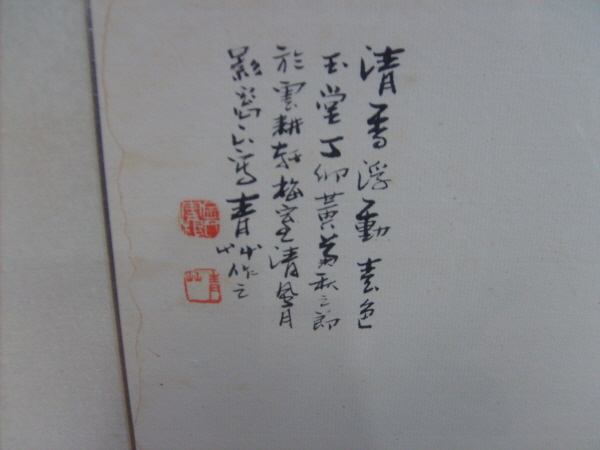 清香浮動素色
玉堂丁卯黃菊秋之節
於雲耕軒梅窗清風月
影窗下寫青
作之
青